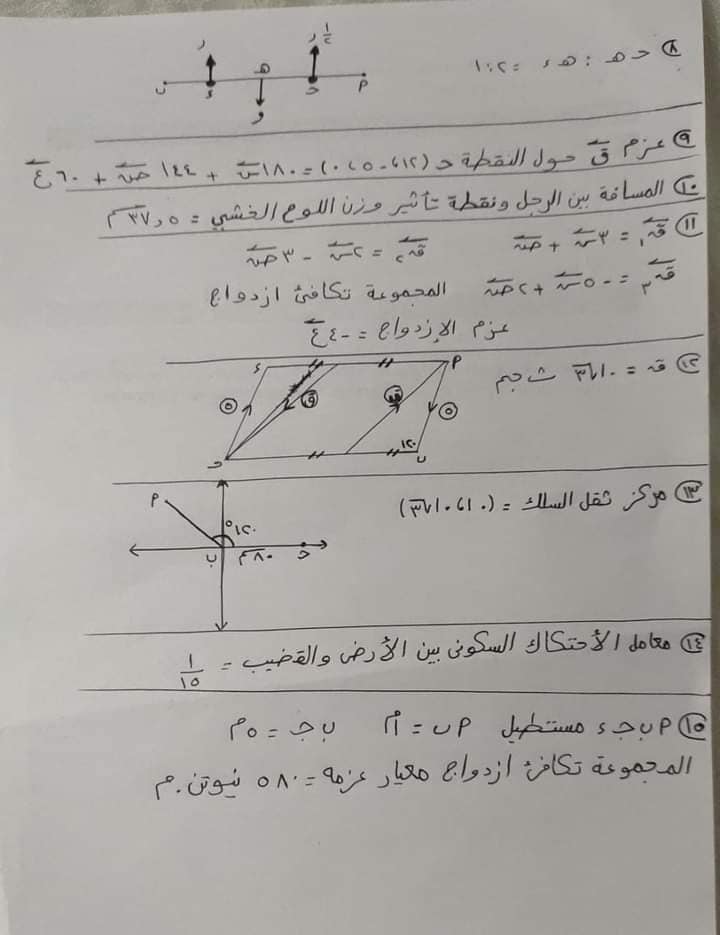 ٨ حـ هـ : هـ ء = ٢ : ١
ر
١/٢ ر
ب ء هـ حـ P
و
٩ عزم ق حول النقطة حـ (١٢، -٥، ٠) = ١٨٠ س + ١٤٤ ص + ٦٠ ع
١٠ المسافة بين الرجل ونقطة تأثير وزن اللوح الخشبي = ٣٧,٥ سم
١١ ق١ = ٣ س + ص ق٢ = ٢ س - ٣ ص
ق٣ = -٥ س + ٢ ص المجموعة تكافئ ازدواج
عزم الإزدواج = -٤ ع
١٢ ق = ١٠√٣ ث جم
ء P
٥ ق ق ٥
١٢٠
حـ ب
١٣ مركز ثقل السلك = (١٠، ١٠√٣)
P
١٢٠°
ب ٨٠ سم حـ
١٤ معامل الأحتكاك السكونى بين الأرض والقضيب = ١/١٥
١٥ P ب جـ ء مستطيل P ب = ٦م ب جـ = ٥م
المجموعة تكافئ ازدواج معيار عزمه = ٥٨٠ نيوتن.م